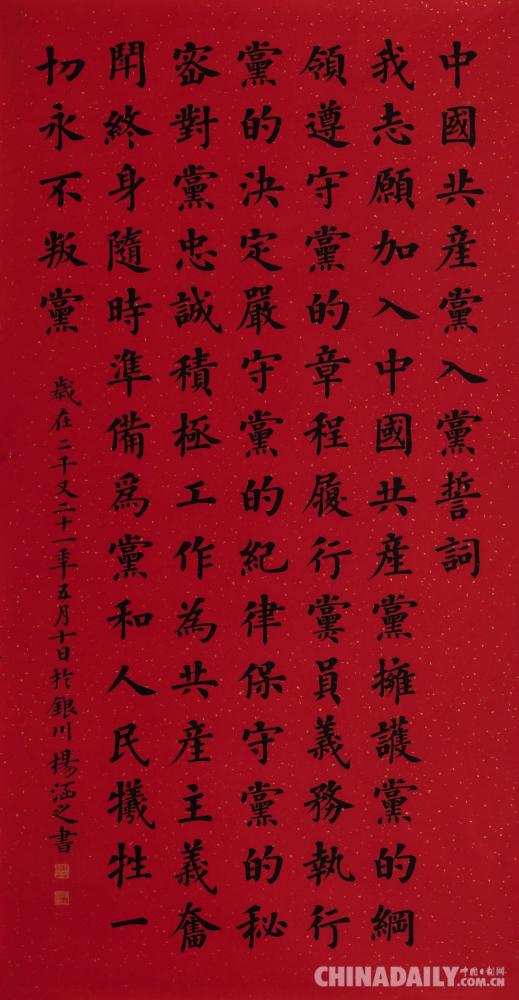 中國共産黨入黨誓詞
我志願加入中國共産黨擁護黨的綱
領遵守黨的章程履行黨員義務執行
黨的決定嚴守黨的紀律保守黨的秘
密對黨忠誠積極工作為共産主義奮
鬥終身隨時準備爲黨和人民犧牲一
切永不叛黨
歲在二千又二十一年五月十日於銀川楊涵之書
中國日報網
CHINADAILY.COM.CN